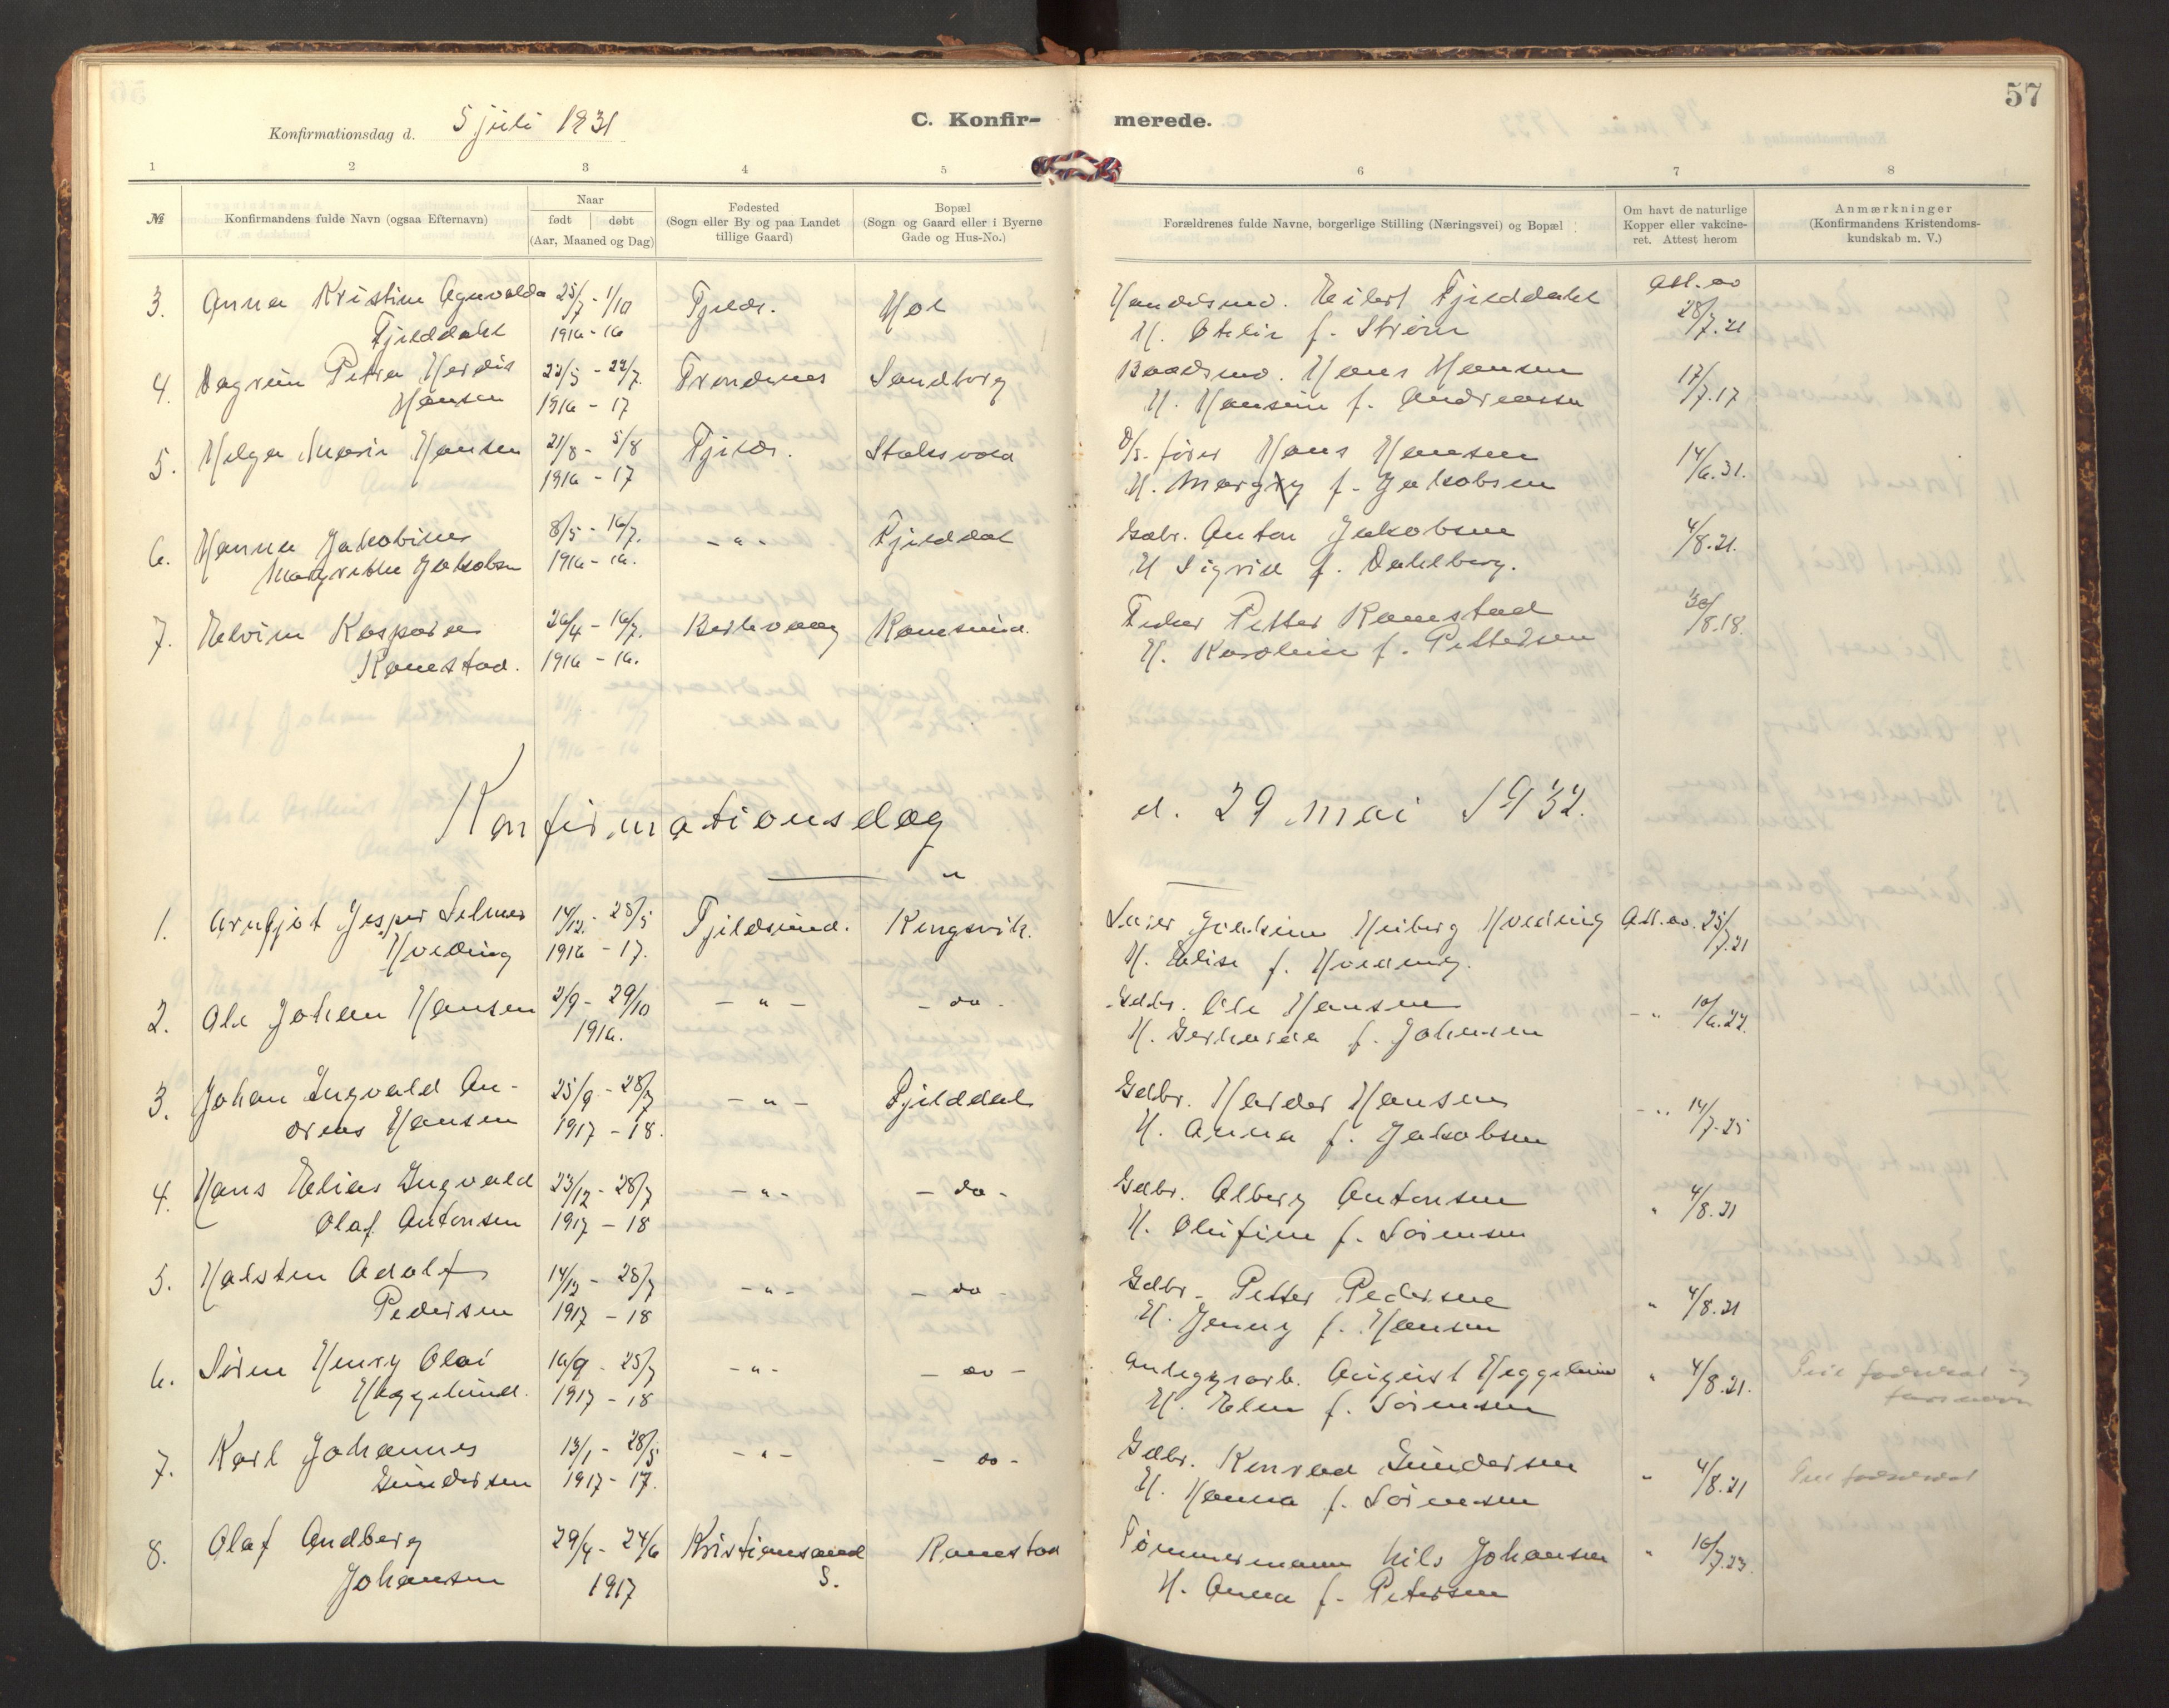 57
Konfirmationsdag d. 5 juli 1931
C. Konfir- merede.
1 2 3 4 5 6 7 8
№
Konfirmandens fulde Navn (ogsaa Efternavn)
Naar
født | døbt
(Aar, Maaned og Dag)
Fødested
(Sogn eller By og paa Landet
tillige Gaard)
Bopæl
(Sogn og Gaard eller i Byerne
Gade og Hus-No.)
Forældrenes fulde Navne, borgerlige Stilling (Næringsvei) og Bopæl
Om havt de naturlige
Kopper eller vakcine-
ret. Attest herom
Anmærkninger
(Konfirmandens Kristendoms-
kundskab m. V.)
3. Anna Kristine 25/7 - 1/10 Fjelds. Hol Handelsmd. Eilert Fjelddahl Att. av 28/7.21
Fjelddahl 1916 - 16 H. Otelie f. Strøm
4. Dagrun Petra Herdis 22/5 - 22/7. Trondenes Sandtorg Baadsmd. Hans Hansen 17/7.17
Hansen 1916 - 17 H. Hansine f. Andreassen
5. Helga Marie Hansen 21/8 - 5/8 Fjelds. Hans Hansen 14/6.31.
1916 - 17 H. Margry f. Jakobsen
6. Hanna Jakobine 8/5 - 16/7. - " - Fjelddal Gdbr. Anton Jakobsen 4/8.21.
Margrethe Jakobsen 1916 - 16. H. Sigrid f. Dahlberg.
7. Elvine Kaspara 26/4 - 16/7. Berlevaag Ramsund. Fisker Petter Ramstad 30/8.18.
Ramstad. 1916 - 16. H. Karoline f. Pettersen
Konfirmationsdag d. 29 mai 1932.
1. Arnljot Jesper Selmer 14/12. - 28/5 Fjeldsund. Kongsvik. Lærer Heiberg Hveding Att. av. 25/7.21
Hveding 1916 - 17. H. Elise f. Hveding.
2. Ole Johan Hansen 2/9 - 29/10 - " - - do - Gdbr. Ole Hansen - " 10/6.22.
1916. H. Gerharda f. Johnsen
3. Johan Ingvald An- 25/9 - 28/7 - " - Fjelddal Gdbr. Harder Hansen - " 14/7.25
dreas Hansen 1917 - 18. H. Anna f. Jakobsen
4. Hans Elias Ingvald 23/12 - 28/7 - " - - do - Gdbr. Alberg Antonsen " 4/8.21
Olaf Antonsen 1917 - 18 H. Olufine f. Sørensen
5. Halsten Adolf 14/12 - 28/7 - " - - do - Gdbr. Petter Pedersen " 4/8.21
Pedersen 1917 - 18 H. Jenny f. Hansen
6. Søren Henry Olai 16/9 - 28/7 - " - - do - Anleggsarb. August Heggelund " 4/8.21.
Heggelund. 1917 - 18 H. Elen f. Sørensen
7. Karl Johannes 13/1 - 28/5 - " - - do - Gdbr. Konrad Gundersen " 4/8.21
Gundersen 1917 - 17. H. Hanna f. Sørensen
8. Olaf Andberg 29/4 - 24/6 Kristiansand Ramstad Tømmermann Nils Johansen " 16/7.23.
Johansen 1917 S. H. Anna f. Petersen